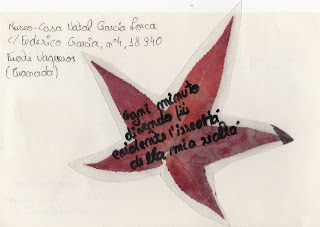 Museo-Casa Natal García Lorca
c/Federico García, nº4, 18340
Fuente Vaqueros
(Granada)
Ogni minuto
divendo più
evidente l'irrealtà
della mia realtà